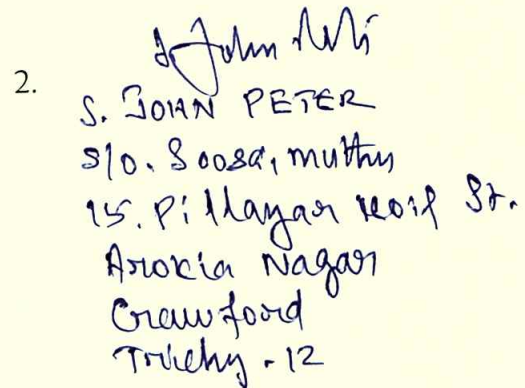 2.
S. JOHN PETER
S/O. Soosai muthu
15. Pillayar Koil St.
Arokia Nagar
Crawford
Trichy - 12